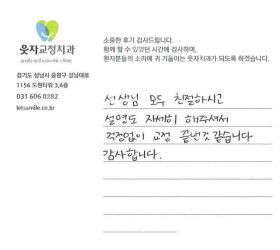 웃자교정치과
경기도 성남시 중원구 성남대로
1156 도원타워 3,4층
031 606 0282
letssmile.co.kr
소중한 후기 감사드립니다.
함께 할 수 있었던 시간에 감사하며,
환자분들의 소리에 귀 기울이는 웃자치과가 되도록 하겠습니다.
선생님 모두 친절하시고
설명도 자세히 해주셔서
걱정없이 교정 끝낸것 같습니다
감사합니다.